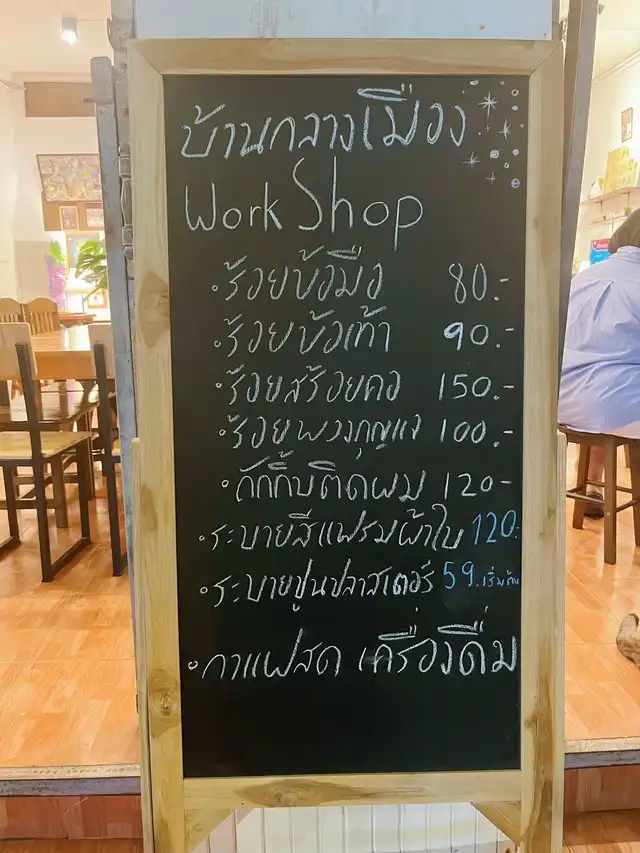 บ้านกลางเมือง
Work Shop
·ร้อยข้อมือ 80.-
·ร้อยข้อเท้า 90.-
·ร้อยสร้อยคอ 150.-
·ร้อยพวงกุญแจ 100.-
·ถักกิ๊บติดผม 120-
·ระบายสีเฟรมผ้าใบ 120.-
·ระบายปูนปลาสเตอร์ 59.เริ่มต้น
·กาแฟสด เครื่องดื่ม